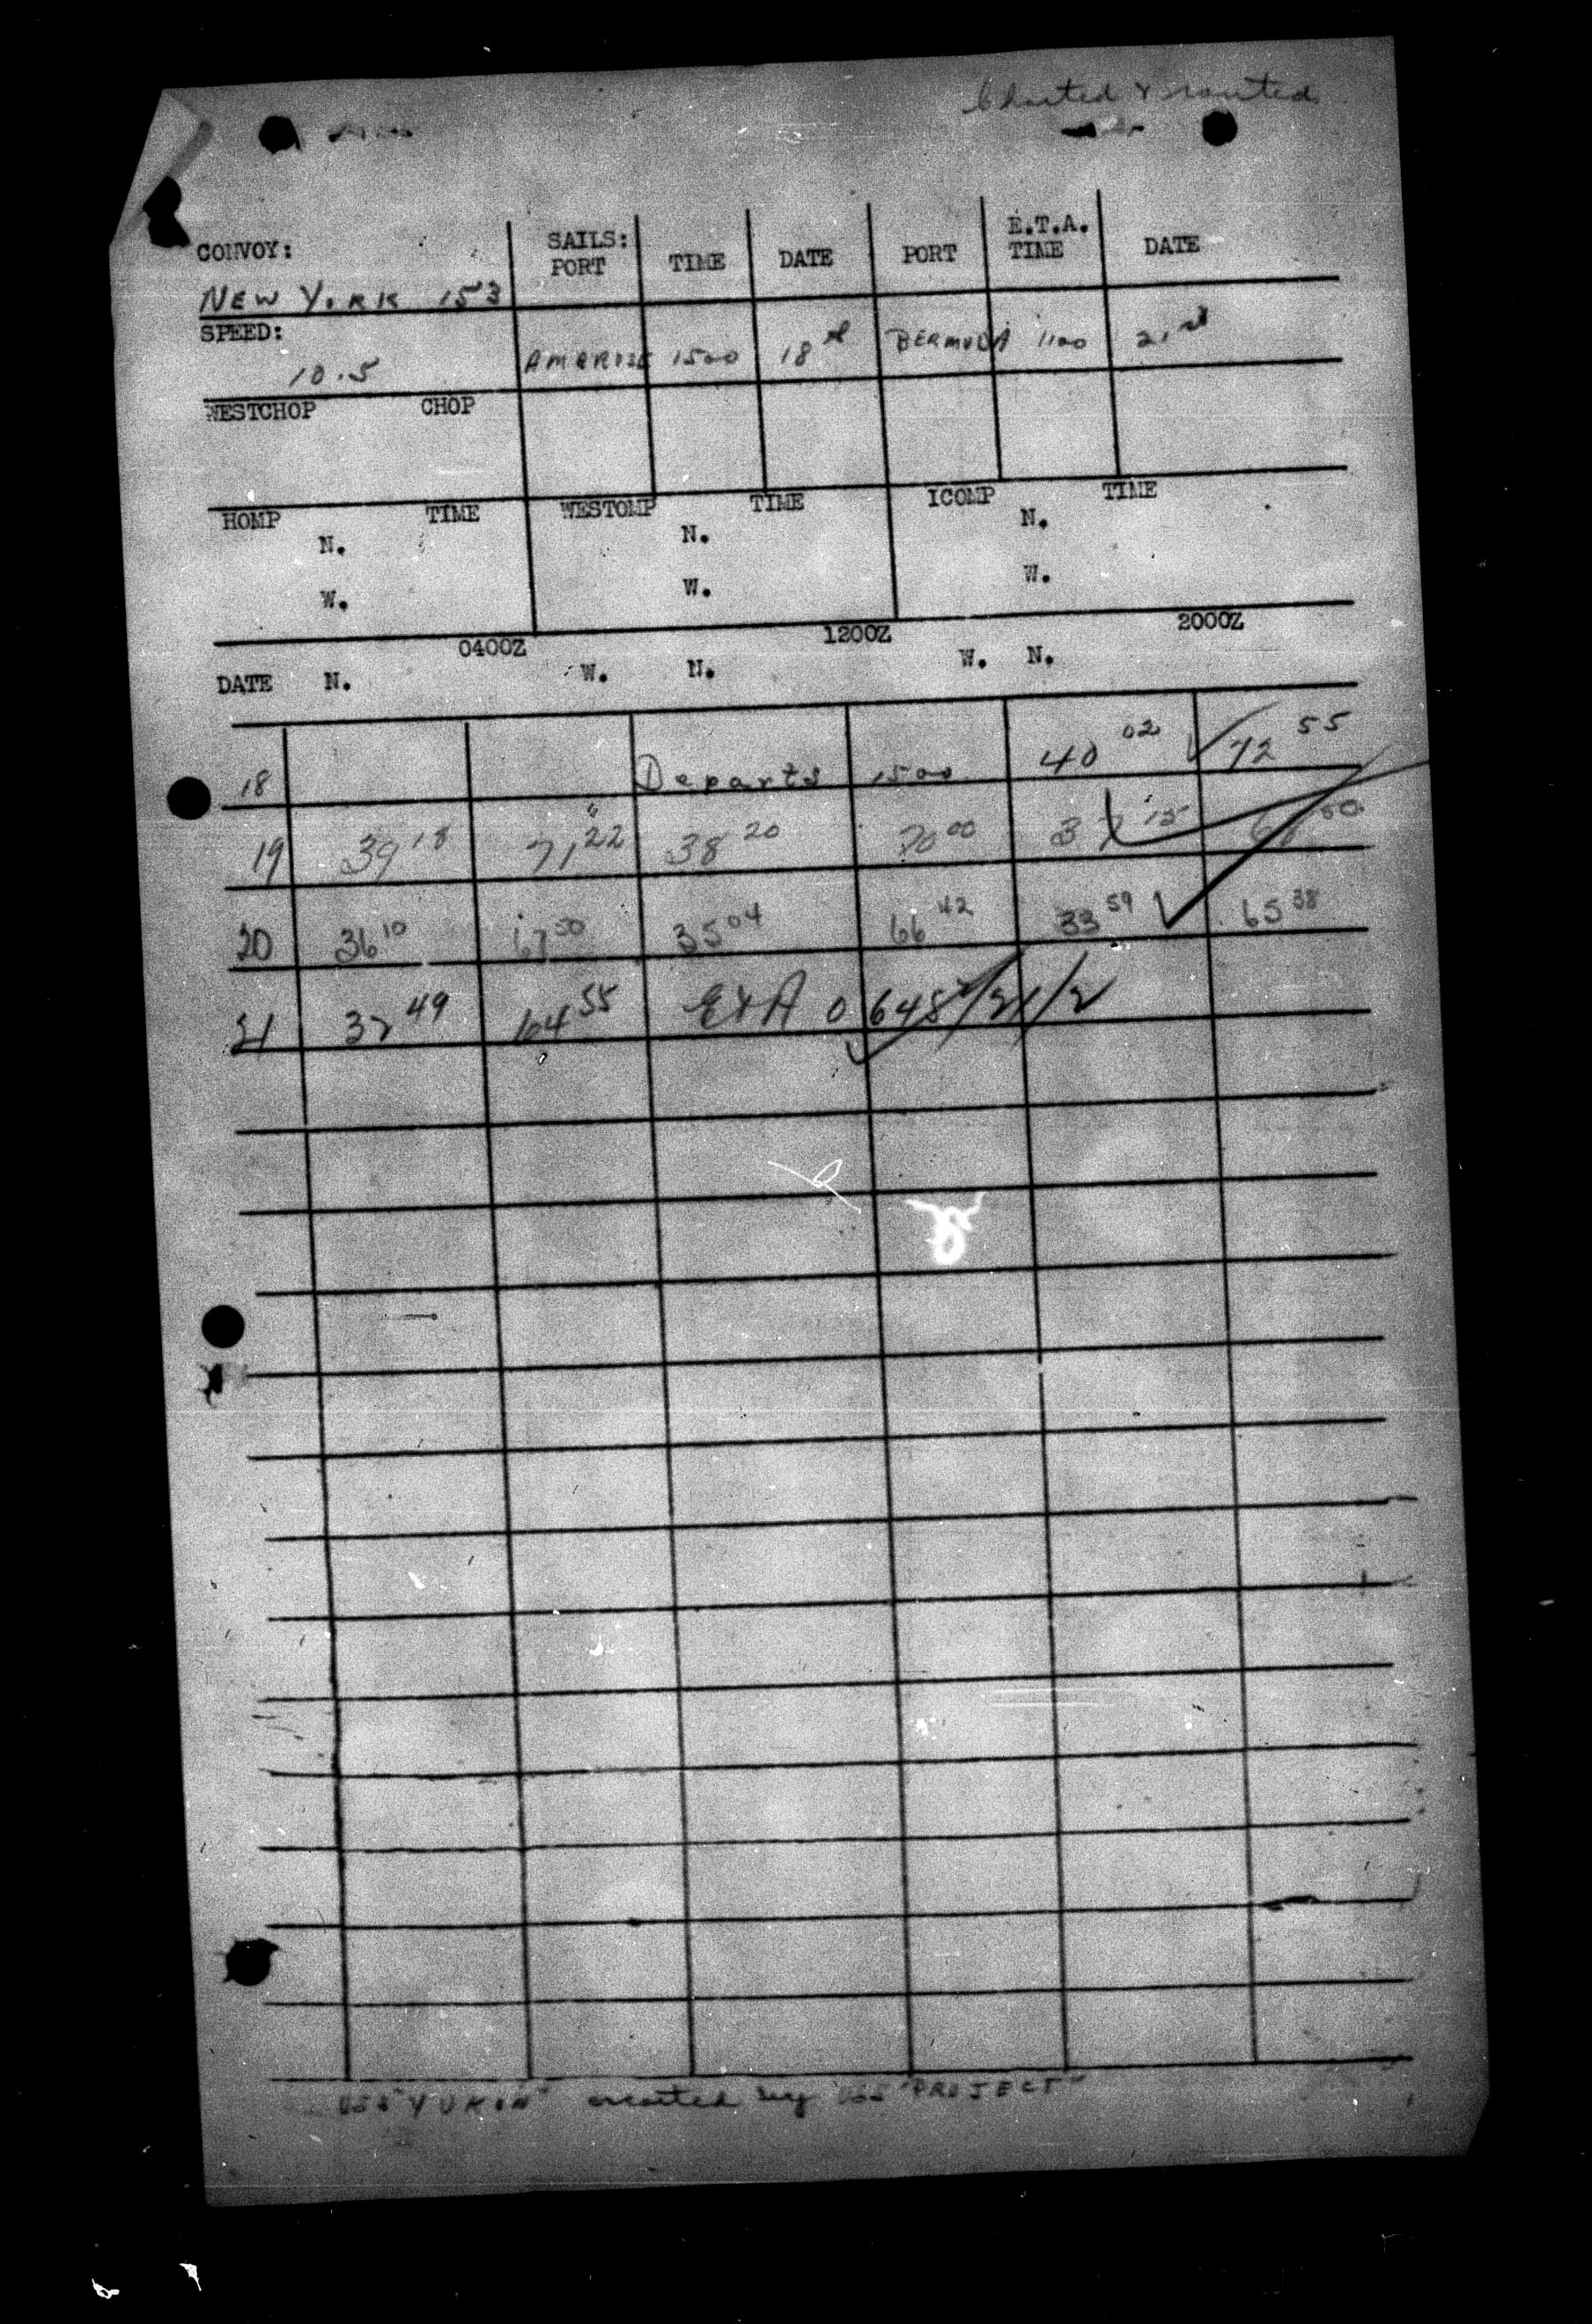 Charted & routed
CONVOY: SAILS: PORT TIME DATE PORT E.T.A. TIME DATE
NEW YORK 153
SPEED:
10.5 AMBROSE 1500 18th BERMUDA 1100 21st
WESTCHOP CHOP
HOMP TIME WESTOMP TIME ICOMP TIME
N. N. N.
W. W. W.
0400Z 1200Z 2000Z
DATE N. W. N. W. N.
18 Departs 1500 40 02 72 55
19 39 18 71 22 38 20 70 00 37 15 50
20 36 10 67 50 35 04 66 42 33 59 65 38
21 32 49 64 55 ETA 0648Z/21/2
USS "YUKON" escorted by USS "PROJECT"